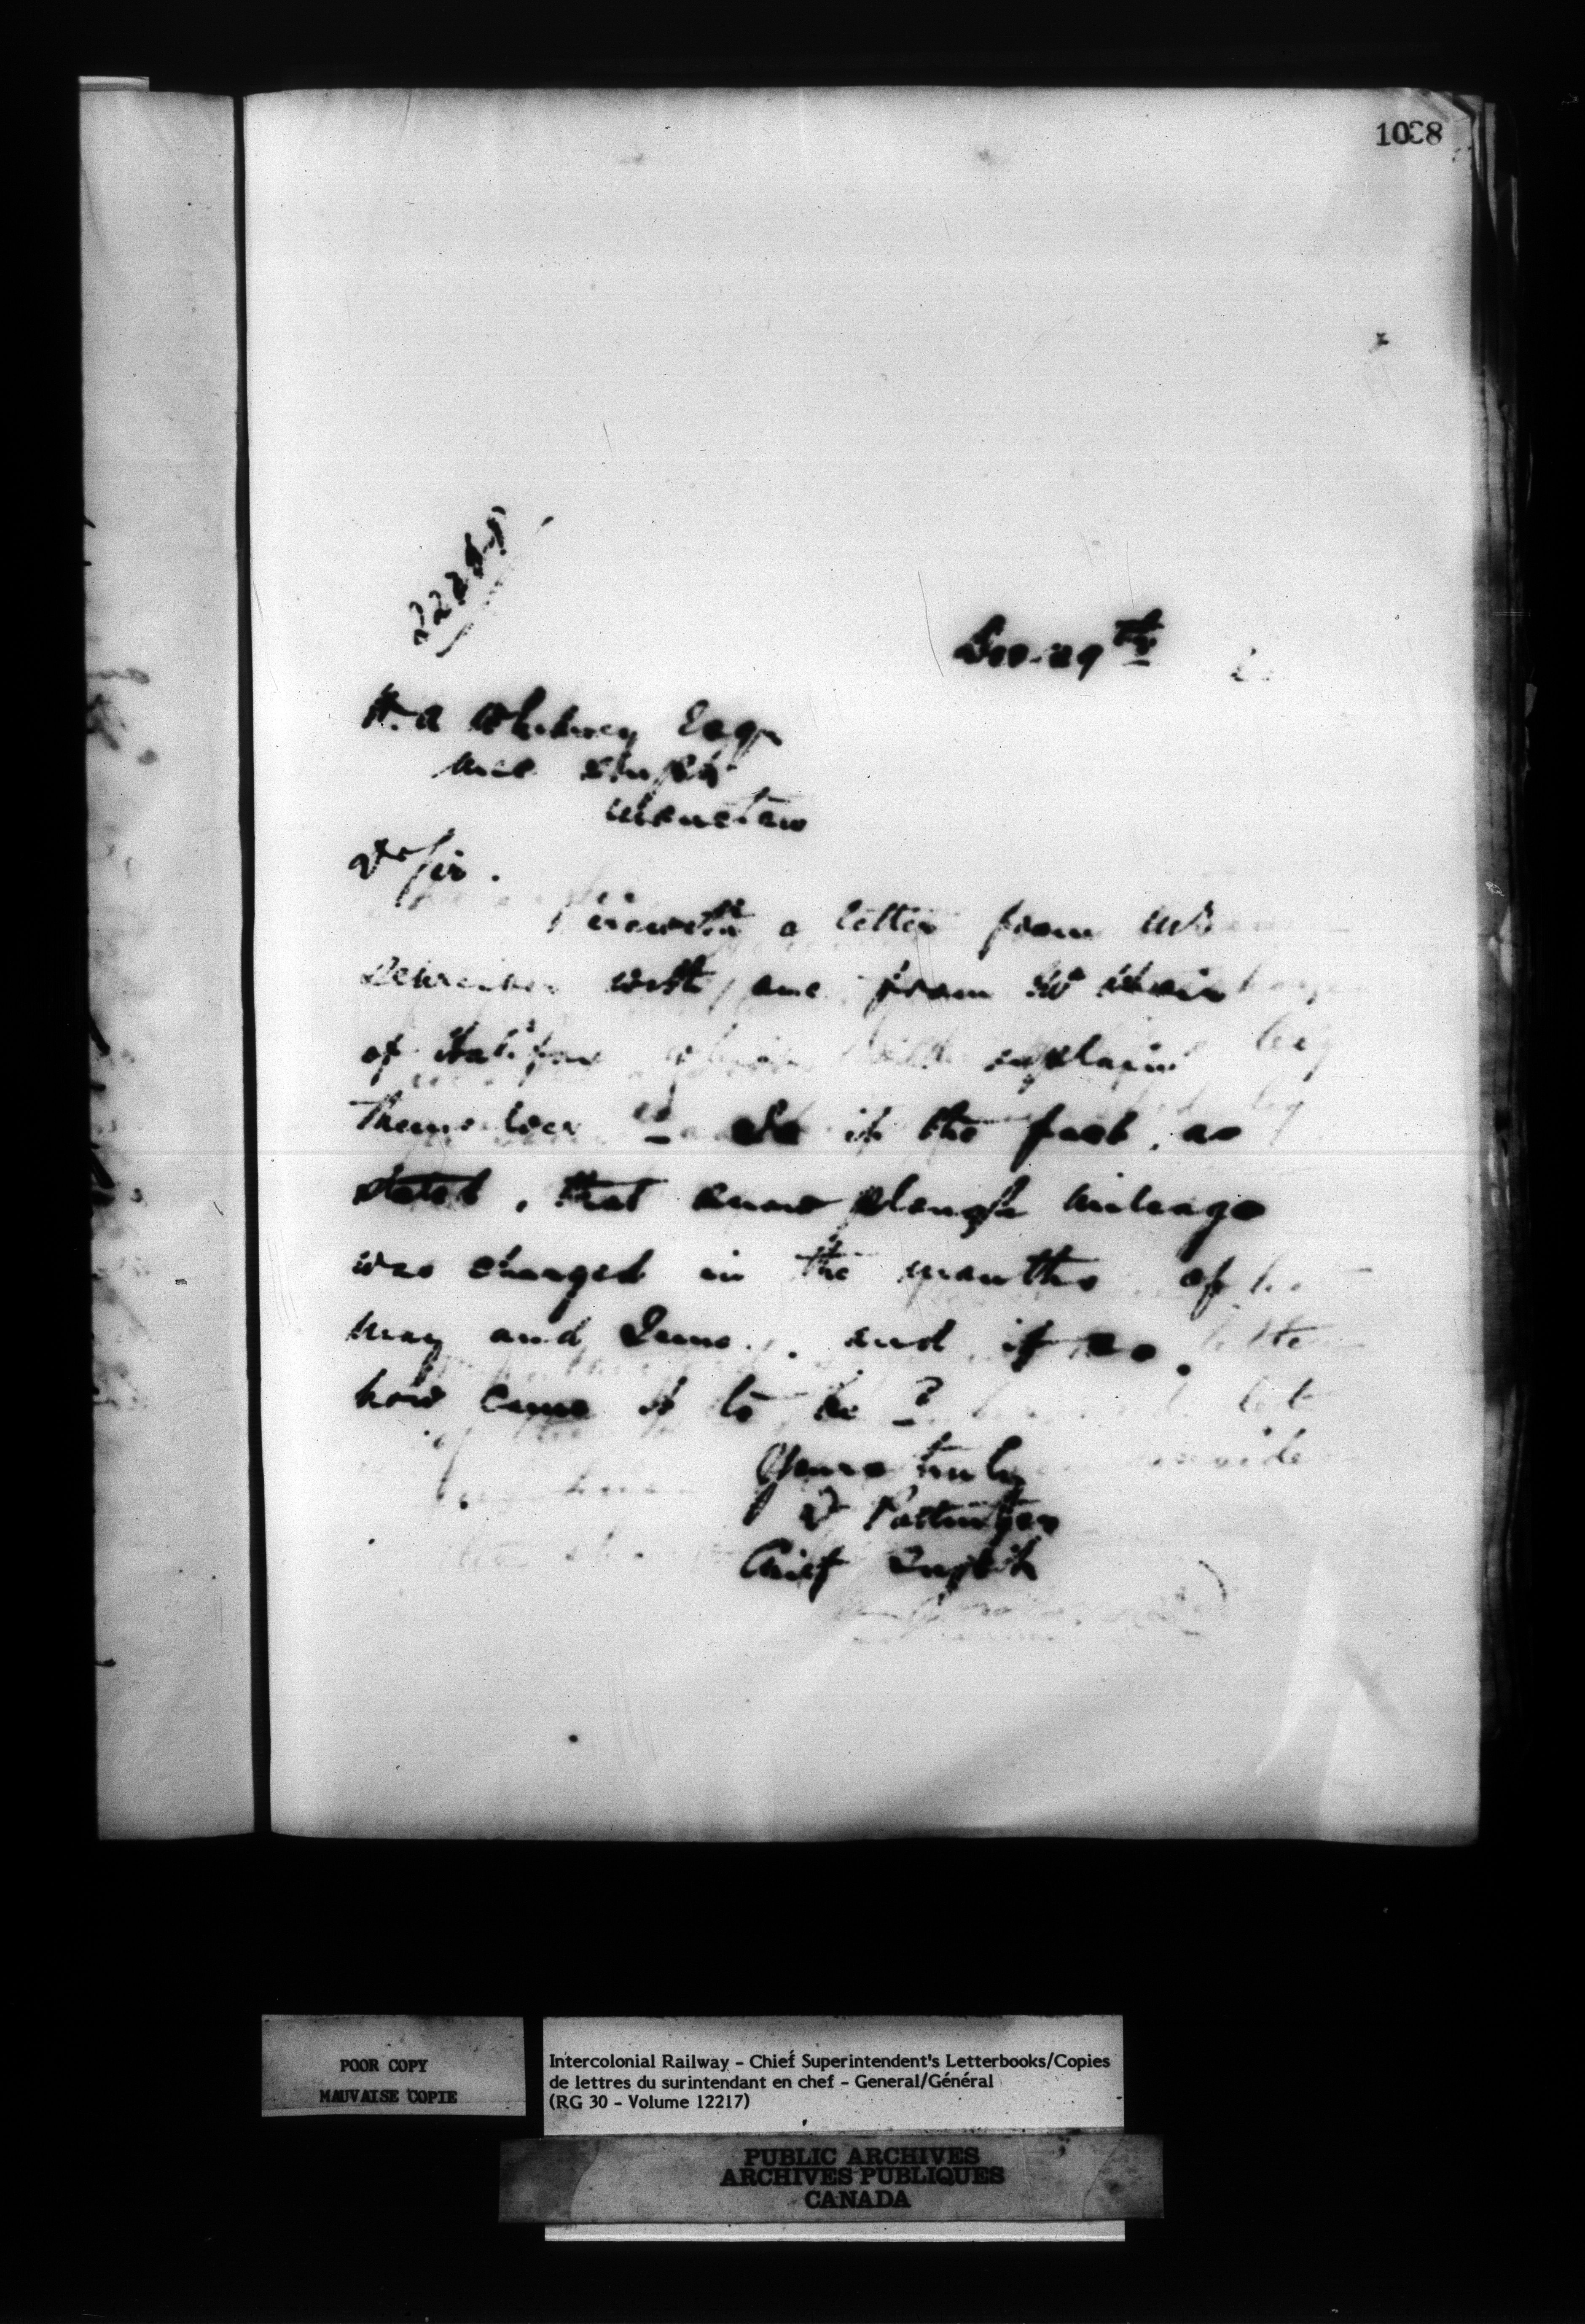 1038
Dec. 29th
H. A Whitney Esqr
Mec Supdt
Moncton
Dr Sir.
Herewith a letter from Mr
Schreiber with one from Mr
of Halifax which will explain
themselves. Is it the fact, as
stated, that snow plough mileage
was charged in the months of
May and June, and if so,
how came it to be?
Yours truly
D Pottinger
Chief Supdt
POOR COPY
MAUVAISE COPIE
Intercolonial Railway - Chief Superintendent's Letterbooks/Copies
de lettres du surintendant en chef - General/Général
(RG 30 - Volume 12217)
PUBLIC ARCHIVES
ARCHIVES PUBLIQUES
CANADA